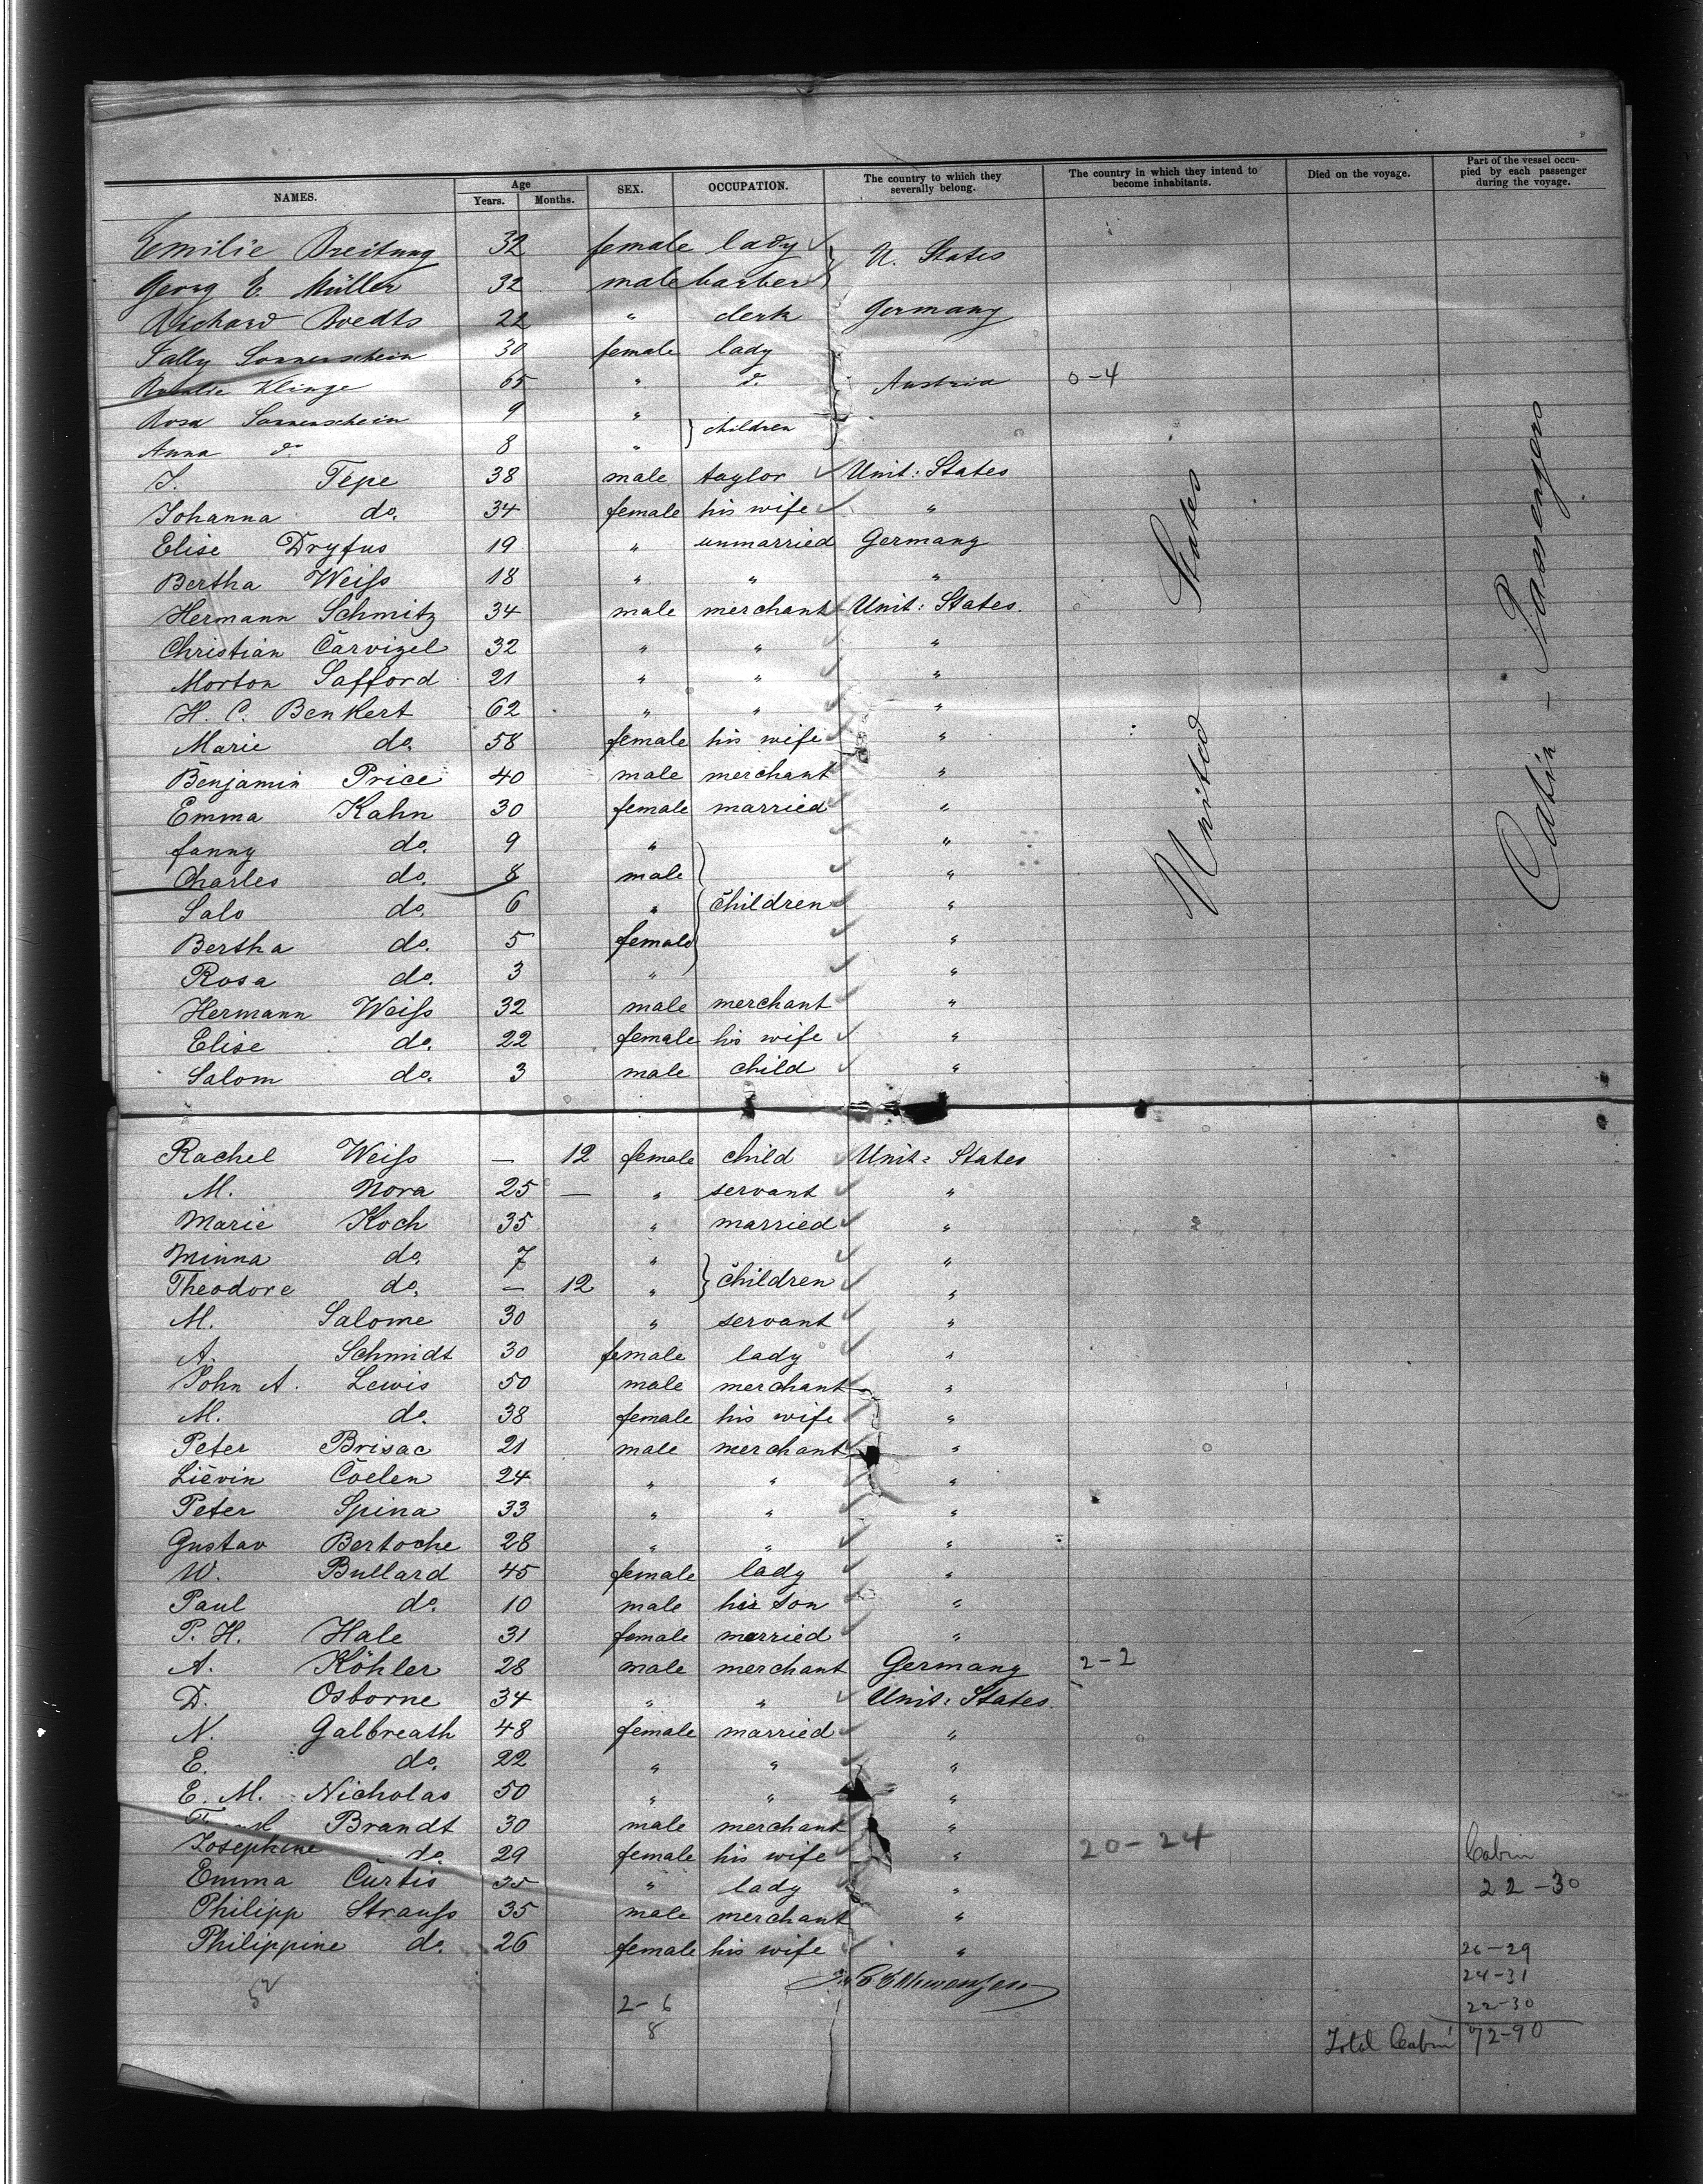 NAMES. Age Years. Months. SEX. OCCUPATION. The country to which they severally belong. The country in which they intend to become inhabitants. Died on the voyage. Part of the vessel occupied by each passenger during the voyage.
Emilie Breitung 32 female lady U. States
Georg E. Müller 32 male barber
Richard Boedts 22 " clerk Germany
Sally Sonnenschein 30 female lady
Klinge 65 " d. Austria 0-4
Rosa Sonnenschein 9 " children
Anna do 8 "
J. Tepe 38 male taylor Unit: States
Johanna do. 34 female his wife "
Elise Dryfus 19 " unmarried Germany
Bertha Weiss 18 " " "
Hermann Schmitz 34 male merchant Unit: States.
Christian Carvizel 32 " " "
Morton Safford 21 " " "
H. C. Benkert 62 " " "
Marie do. 58 female his wife "
Benjamin Price 40 male merchant "
Emma Kahn 30 female married "
fanny do. 9 " "
Charles do. 8 male "
Salo do. 6 " children "
Bertha do. 5 female "
Rosa do. 3 " "
Hermann Weiss 32 male merchant "
Elise do. 22 female his wife "
Salom do. 3 male child "
United States
Cabin - Passengers
Rachel Weiss — 12 female child Unit: States
M. Nora 25 — " servant "
Marie Koch 35 " married "
Minna do. 7 " "
Theodore do. — 12 " children "
M. Salome 30 " servant "
A. Schmidt 30 female lady "
John A. Lewis 50 male merchant "
M. do. 38 female his wife "
Peter Brisac 21 male merchant "
Liévin Coelen 24 " " "
Peter Spina 33 " " "
Gustav Bertoche 28 " " "
W. Bullard 45 female lady "
Paul do. 10 male his son "
P. H. Hale 31 female married "
A. Köhler 28 male merchant Germany 2-2
D. Osborne 34 " " Unit: States.
N. Galbreath 48 female married "
E. do. 22 " " "
E. M. Nicholas 50 " " "
Brandt 30 male merchant "
Josephine do. 29 female his wife " 20-24 Cabin
Emma Curtis 35 " lady " 22-30
Philipp Strauss 35 male merchant "
Philippine do. 26 female his wife " 26-29
24-31
52 2-6 22-30
8 Total Cabin 72-90